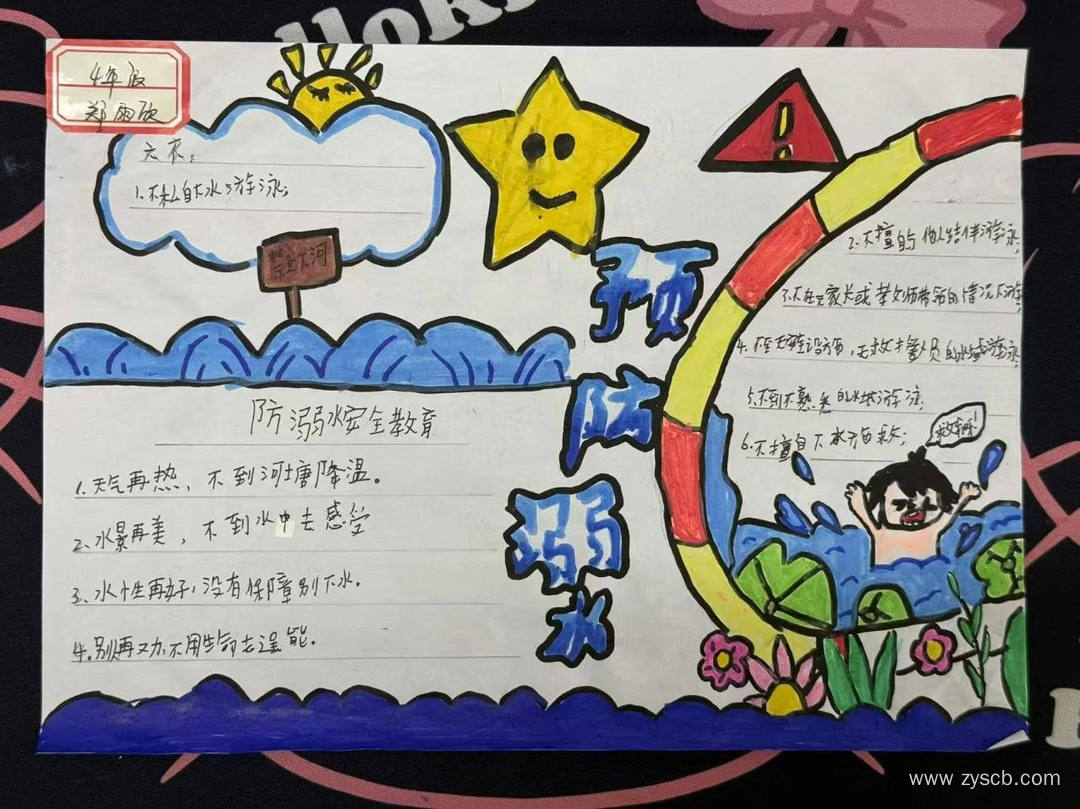 4年级
郑雨欣
六不：
1.不私自下水游泳；
禁止下河
预防溺水
2.不擅自与他人结伴游泳；
3.不在无家长或教师带领的情况下游
4.不在无安全设施，无救护人员的水域游泳
5.不到不熟悉的水域游泳；
6.不擅自下水施救；
救命啊！
防溺水安全教育
1.天气再热，不到河塘降温。
2.水景再美，不到水中去感受
3.水性再好，没有保障别下水。
4.别再又功，不用生命去逞能。
www.zyscb.com